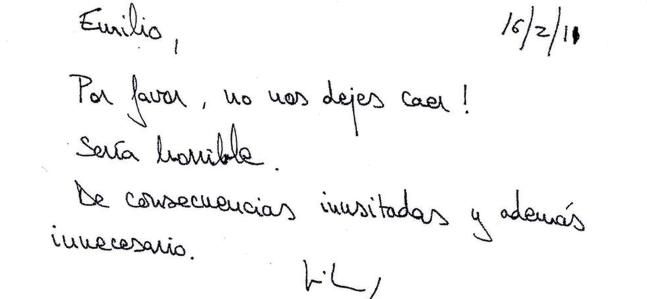 Emilio, 16/2/11
Por favor, no nos dejes caer!
Sería horrible.
De consecuencias inusitadas y además
innecesario.